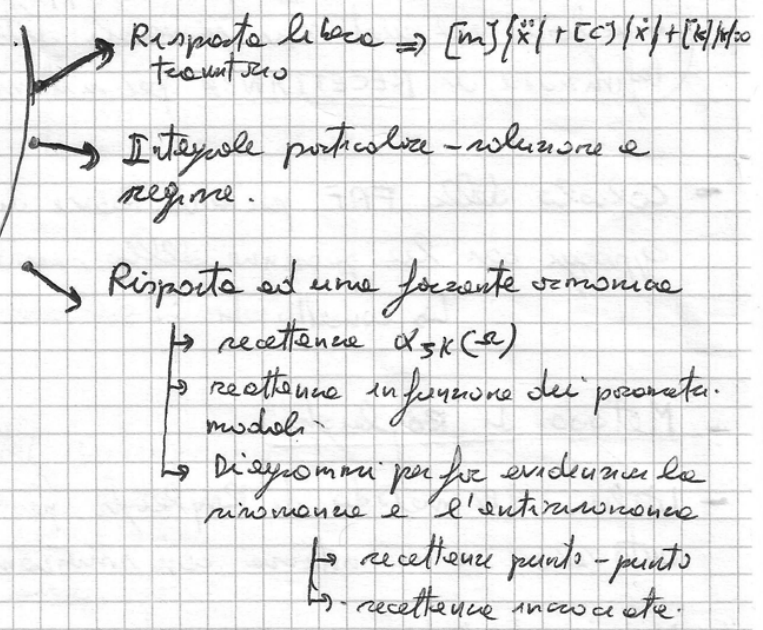 Risposta libera ⇒ [m]{ẍ}+[c]{ẋ}+[k]{x}=0
transitorio
Integrale particolare - soluzione a
regime.
Risposta ad una forzante armonica
→ recettanza α_JK(Ω)
→ recettanza in funzione dei parametri
modali.
→ Diagrammi per far evidenziare la
risonanza e l'antirisonanza
→ recettanze punto-punto
→ recettanza incrociata.